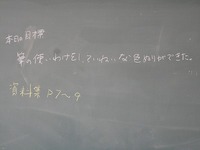 本日の目標
筆の使いわけをして、ていねいな色ぬりができた。
資料集 P7〜9